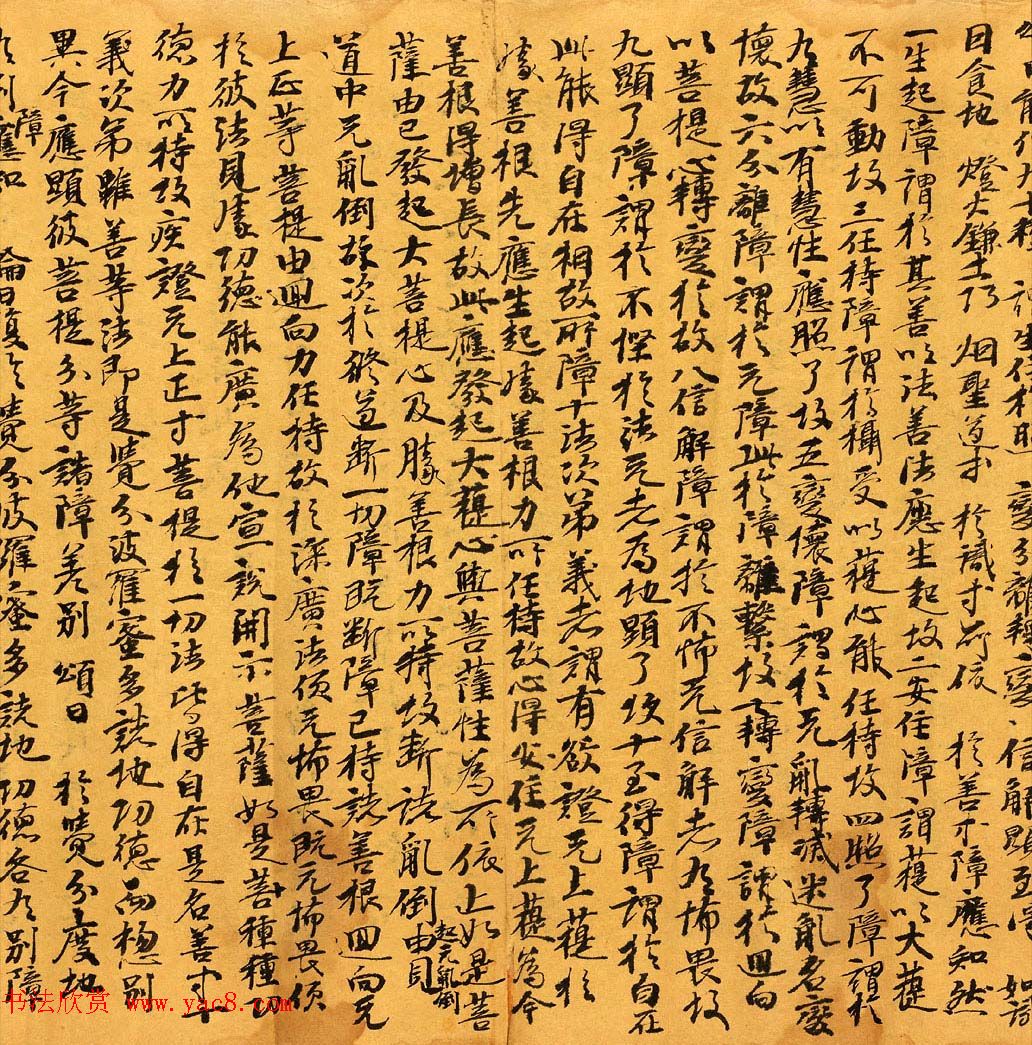 日食地 燈火鎌土巧 烟聖道才 於識才所依 於善才障應知然
一生起障謂於其善以法善法應生起故二安住障謂𦵮以大𦵮
不可動故三任持障謂於攝受以𦵮心能任持故四照了障謂於
有慧以有慧性應照了故五變壞障謂於无亂轉滅迷亂名變
壞故六分離障謂於无障此於障離繫故七轉變障謂於迴向
以菩提心轉變於故八信解障謂於不怖无信解者有怖畏故
九顯了障謂於不慳於法无者為他顯了故十至得障謂於自在
此能得自在相故所障十法次第義者謂有欲證无上𦵮於
據善根先應生起據善根力所任持故心得安住无上𦵮為令
善根得增長故此應發起大𦵮心與菩薩性為所依止如是菩
薩由已發起大菩提心及勝善根力所持故斷諸亂倒 由見
起无亂倒
道中无亂倒故次於修道斷一切障既斷障已持諸善根迴向无
上正等菩提由迴向力任持故於深廣法便无怖畏既无怖畏便
於彼法見勝功德能廣為他宣說開示菩薩如是菩種種功
德力所持故疾證无上正等菩提於一切法皆得自在是名善等十
義次第雖善等法即是覺分波羅蜜多諸地功德而總別
異今應顯彼菩提分等諸障差別 頌曰 於覺分度地
有別障應知 論曰復於覺分波羅蜜多諸地功德各有別障
书法欣赏 www.yac8.com